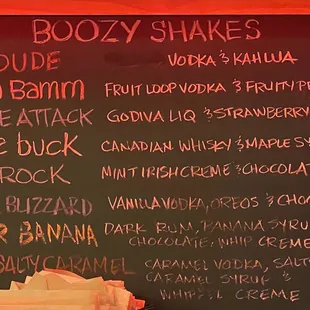 BOOZY SHAKES
DUDE VODKA & KAHLUA
BAMM FRUIT LOOP VODKA & FRUITY PE
E ATTACK GODIVA LIQ & STRAWBERRY
buck CANADIAN WHISKY & MAPLE SY
ROCK MINT IRISH CREME & CHOCOLAT
BLIZZARD VANILLA VODKA, OREOS & CHO
R BANANA DARK RUM, BANANA SYRU
CHOCOLATE, WHIP CREME
SALTY CARAMEL CARAMEL VODKA, SALT
CARAMEL SYRUP &
WHIPPED CREME